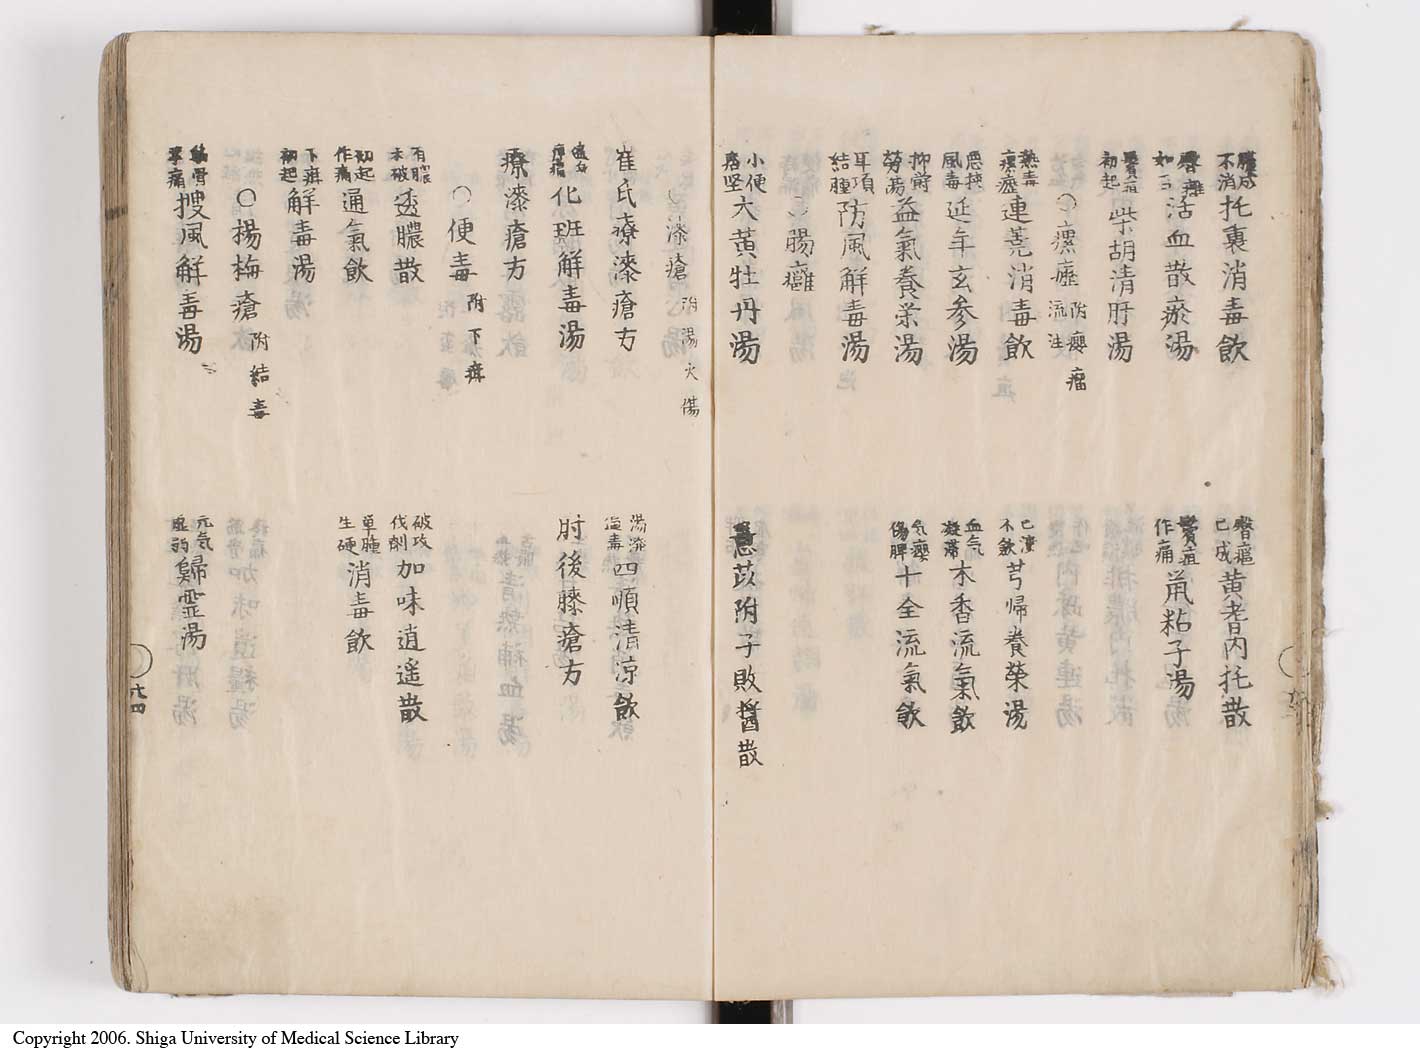 膿成不消 托裏消毒飲
已成 黄耆内托散
活血散瘀湯
作痛 鼠粘子湯
鬢疽初起 柴胡清肝湯
○瘰癧 附癭瘤 流注
熱毒瘰癧 連蕘消毒飲
已潰不斂 芎帰養榮湯
風毒 延年玄参湯
血氣凝滞 木香流氣飲
益氣養栄湯
氣癭傷脾 十全流氣飲
耳項結腫 防風解毒湯
○腸癰
小便 大黄牡丹湯
薏苡附子敗醤散
○漆瘡 附湯火傷
崔氏療漆瘡方
四順清凉飲
化班解毒湯
肘後漆瘡方
療漆瘡方
○便毒 附下疳
有膿未破 透膿散
破攻伐劑 加味逍遥散
初起作痛 通氣飲
單腫生硬 消毒飲
下疳初起 解毒湯
○楊梅瘡 附結毒
筋骨 搜風解毒湯
元氣虚弱 歸霊湯
廿四
Copyright 2006. Shiga University of Medical Science Library